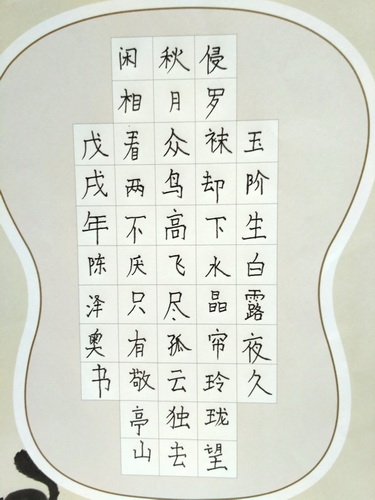 玉阶生白露夜久
侵罗袜却下水晶帘玲珑望
秋月众鸟高飞尽孤云独去
闲相看两不厌只有敬亭山
戊戌年陈泽奥书